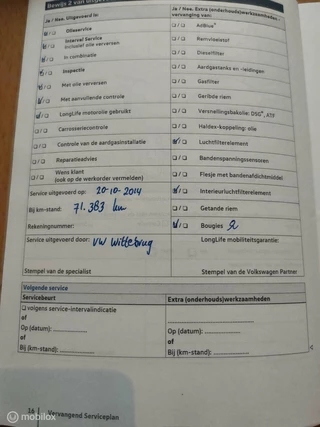 Bewijs 2 van uitgevoerd
Ja / Nee. Uitgevoerd in:
Olieservice
Interval Service
Inclusief olie verversen
In combinatie
Inspectie
Met olie verversen
Met aanvullende controle
LongLife motorolie gebruikt
Carrosseriecontrole
Controle van de aardgasinstallatie
Reparatieadvies
Wens klant
(ook op de werkorder vermelden)
Service uitgevoerd op: 20-10-2014
Bij km-stand: 71.383 km
Rekeningnummer:
Service uitgevoerd door: VW Wittebrug
Stempel van de specialist
Ja / Nee. Extra (onderhouds)werkzaamheden -
vervanging van:
AdBlue®
Remvloeistof
Dieselfilter
Aardgastanks en -leidingen
Gasfilter
Geribde riem
Versnellingsbakolie: DSG®, ATF
Haldex-koppeling: olie
Luchtfilterelement
Bandenspanningssensoren
Flesje met bandenafdichtmiddel
Interieurluchtfilterelement
Getande riem
Bougies
LongLife mobiliteitsgarantie:
Stempel van de Volkswagen Partner
Volgende service
Servicebeurt
volgens service-intervalindicatie
of
Op (datum):
of
Bij (km-stand):
Extra (onderhouds)werkzaamheden
Op (datum):
of
Bij (km-stand):
16 Vervangend Serviceplan
© mobilox